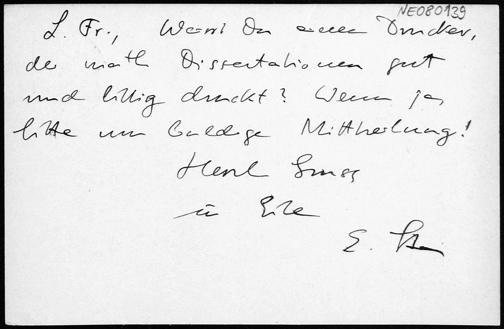 NE080139
L. Fr., Weisst Du einen Drucker,
der math Dissertationen gut
und billig druckt? Wenn ja,
bitte um baldige Mittheilung!
Herzl Gruss
in Eile
E.